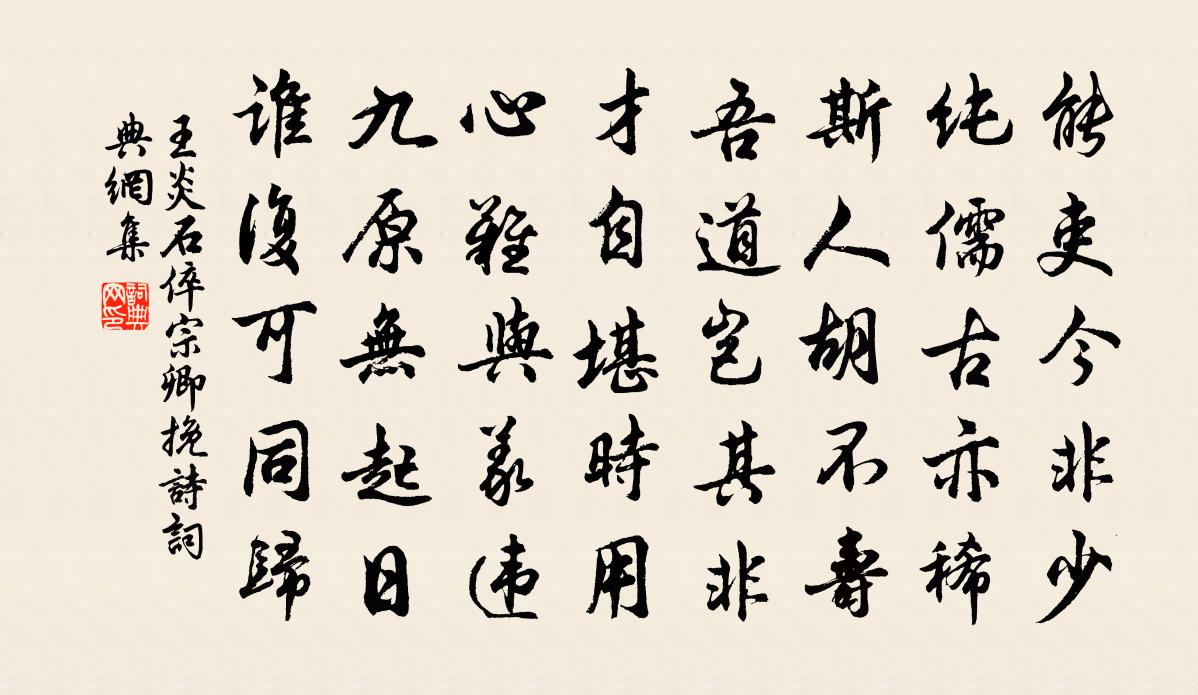 能吏今非少
純儒古亦稀
斯人胡不壽
吾道豈其非
才自堪時用
心難與義違
九原無起日
誰復可同歸
王炎石倅宗卿挽詩詞
典網集
詞典网印